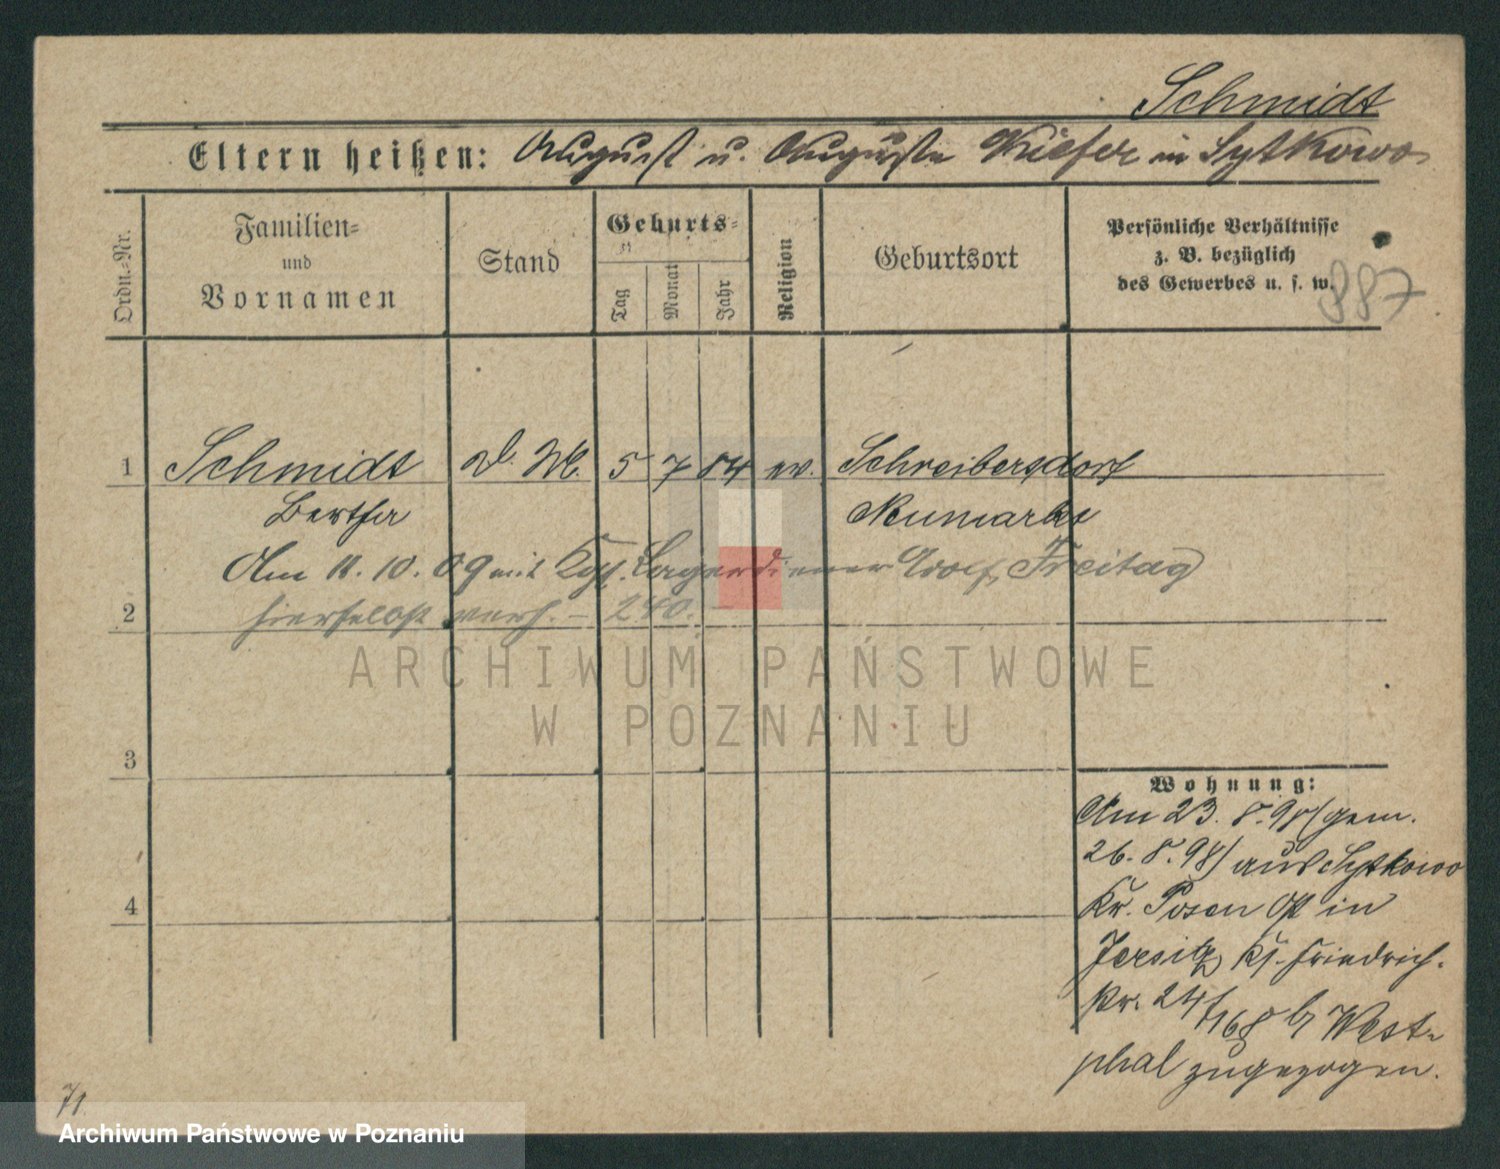 Schmidt
Eltern heißen: August u. Auguste Kiefer in Sytkowo
Ordn.-Nr.
Familien-
und
Vornamen
Stand
Geburts-
Tag
Monat
Jahr
Religion
Geburtsort
Persönliche Verhältnisse
z. B. bezüglich
des Gewerbes u. s. w.
887
1 Schmidt D. M. 5 7 84 ev. Schreibersdorf
Bertha Neumarkt
Am 11. 10. 09 mit Kgl. Lagerdiener Freitag
2 hierselbst verh. – 240.
ARCHIWUM PAŃSTWOWE
W POZNANIU
3
Wohnung:
Am 23. 8. 98 /gem.
26. 8. 98/ aus Sytkowo
4 Kr. Posen Ost in
Jersitz Ks. Friedrich-
str. 24/168 b/ West-
phal zugezogen.
71
Archiwum Państwowe w Poznaniu